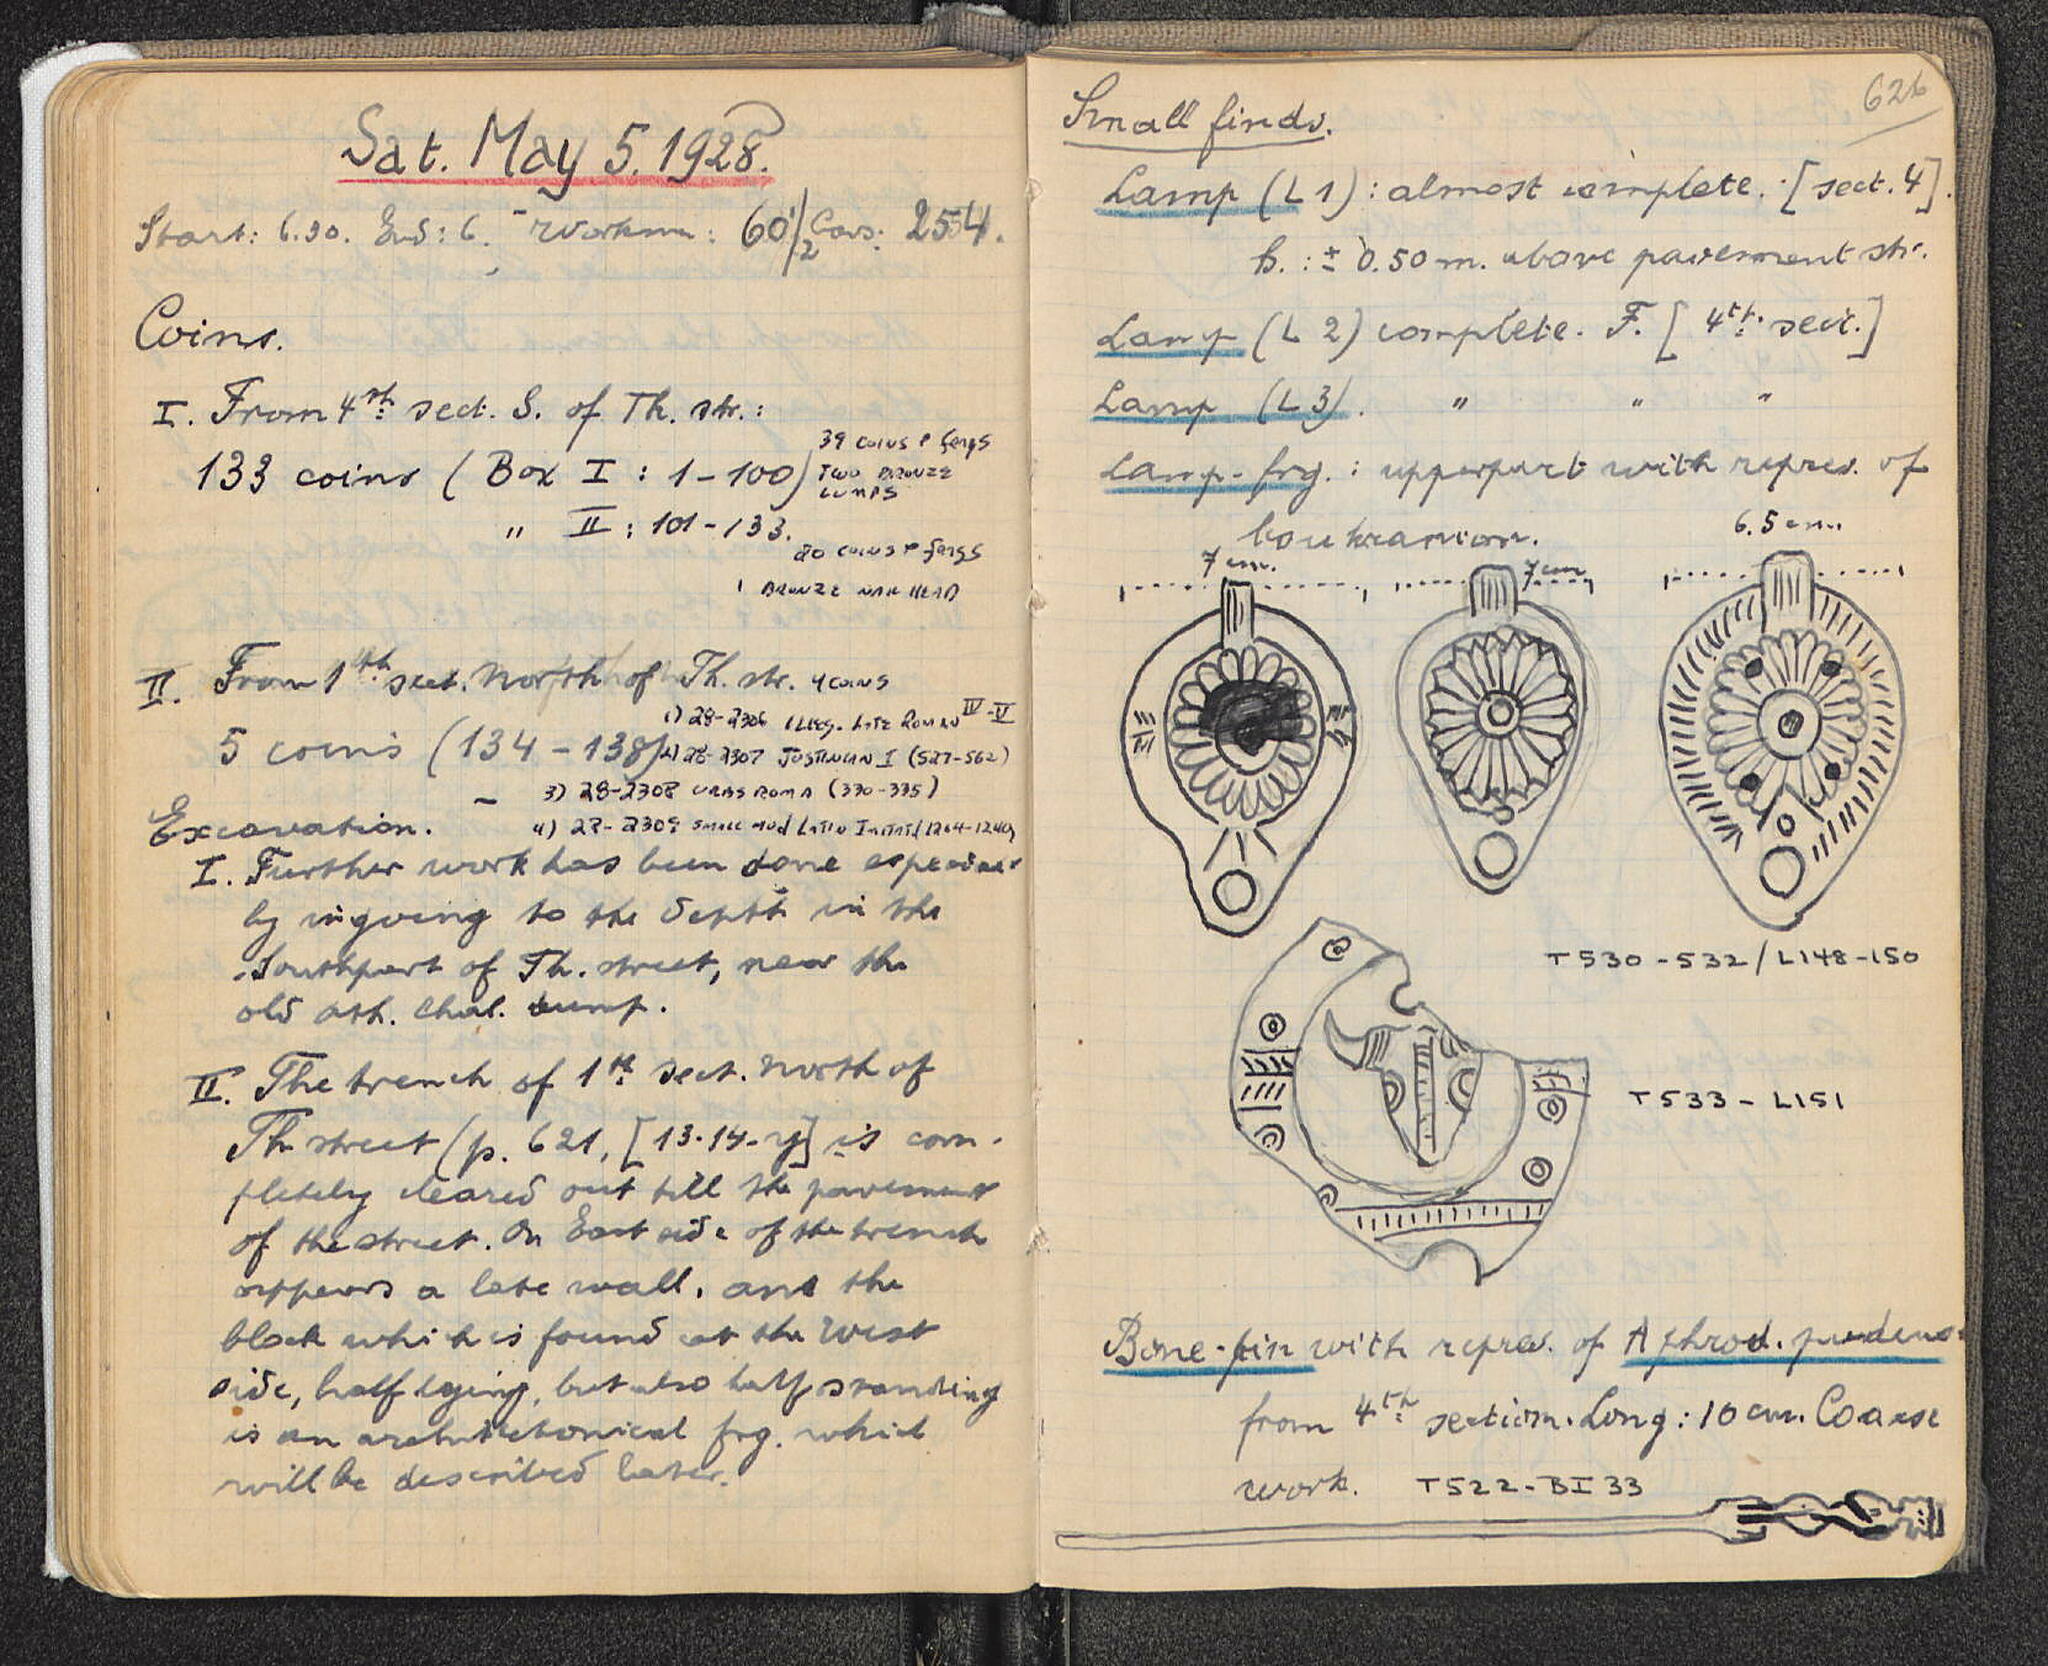 Sat. May 5. 1928.
Start: 6.30. End: 6. Workmen: 60 1/2 Cars: 254.
Coins.
I. From 4st sect. S. of Th. str.:
133 coins (Box I : 1-100)
39 coins & frags
Two bronze
lumps
" II : 101-133.
80 coins & frags
1 Bronze nail head
II. From 1th sect. North of Th. str. 4 coins
5 coins (134-138)
1) 28-2306 illeg. Late Roman IV-V
2) 28-2307 Justinian I (527-562)
3) 28-2308 Urbs Roma (330-335)
4) 28-2309 small mod Latin Imitat
Excavation.
I. Further work has been done especial-
ly in going to the depth in the
Southpart of Th. street, near the
old dump.
II. The trench of 1st sect. North of
Th street (p. 621, [13-14-y] is com-
pletely cleared out till the pavement
of the street. On East side of the trench
appears a late wall, and the
block which is found at the West
side, half lying, but also half standing
is an architectonical frg. which
will be described later.
626
Small finds.
Lamp (L 1): almost complete. [sect. 4].
h. : ± 0.50 m. above pavement str.
Lamp (L 2) complete. F. [4th. sect.]
Lamp (L 3). " " "
Lamp-frg. : upperpart with repres. of
boukranion.
7 cm.
7 cm
6.5 cm.
T530-532/L148-150
T533-L151
Bone-pin with repres. of Aphrod. pudens
from 4th section. Long: 10 cm. Coarse
work. T522-BI 33